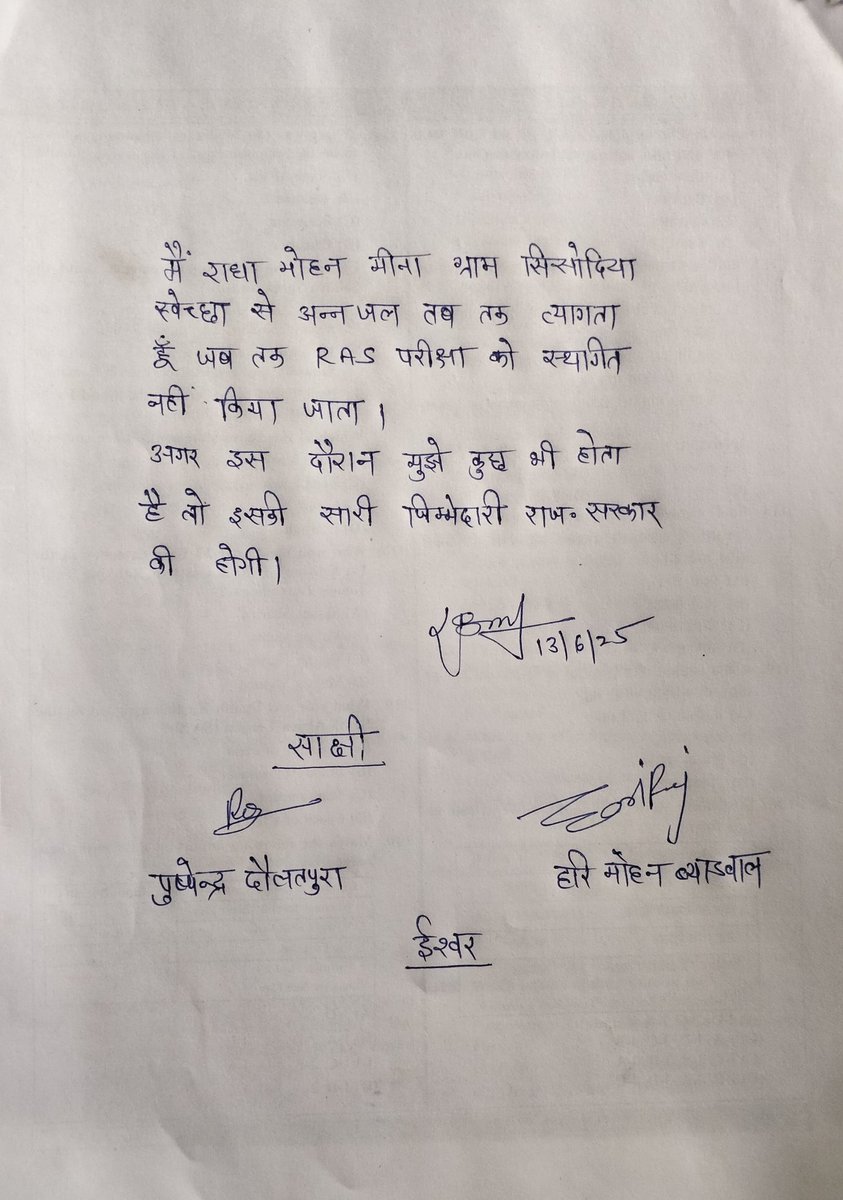 मैं राधा मोहन मीना ग्राम सिसोदिया
स्वेच्छा से अन्न जल तब तक त्यागता
हूँ जब तक RAS परीक्षा को स्थगित
नहीं किया जाता।
अगर इस दौरान मुझे कुछ भी होता
है तो इसकी सारी जिम्मेदारी राज. सरकार
की होगी।
13/6/25
साक्षी
पुष्पेन्द्र दौलतपुरा हरि मोहन ब्याडवाल
ईश्वर